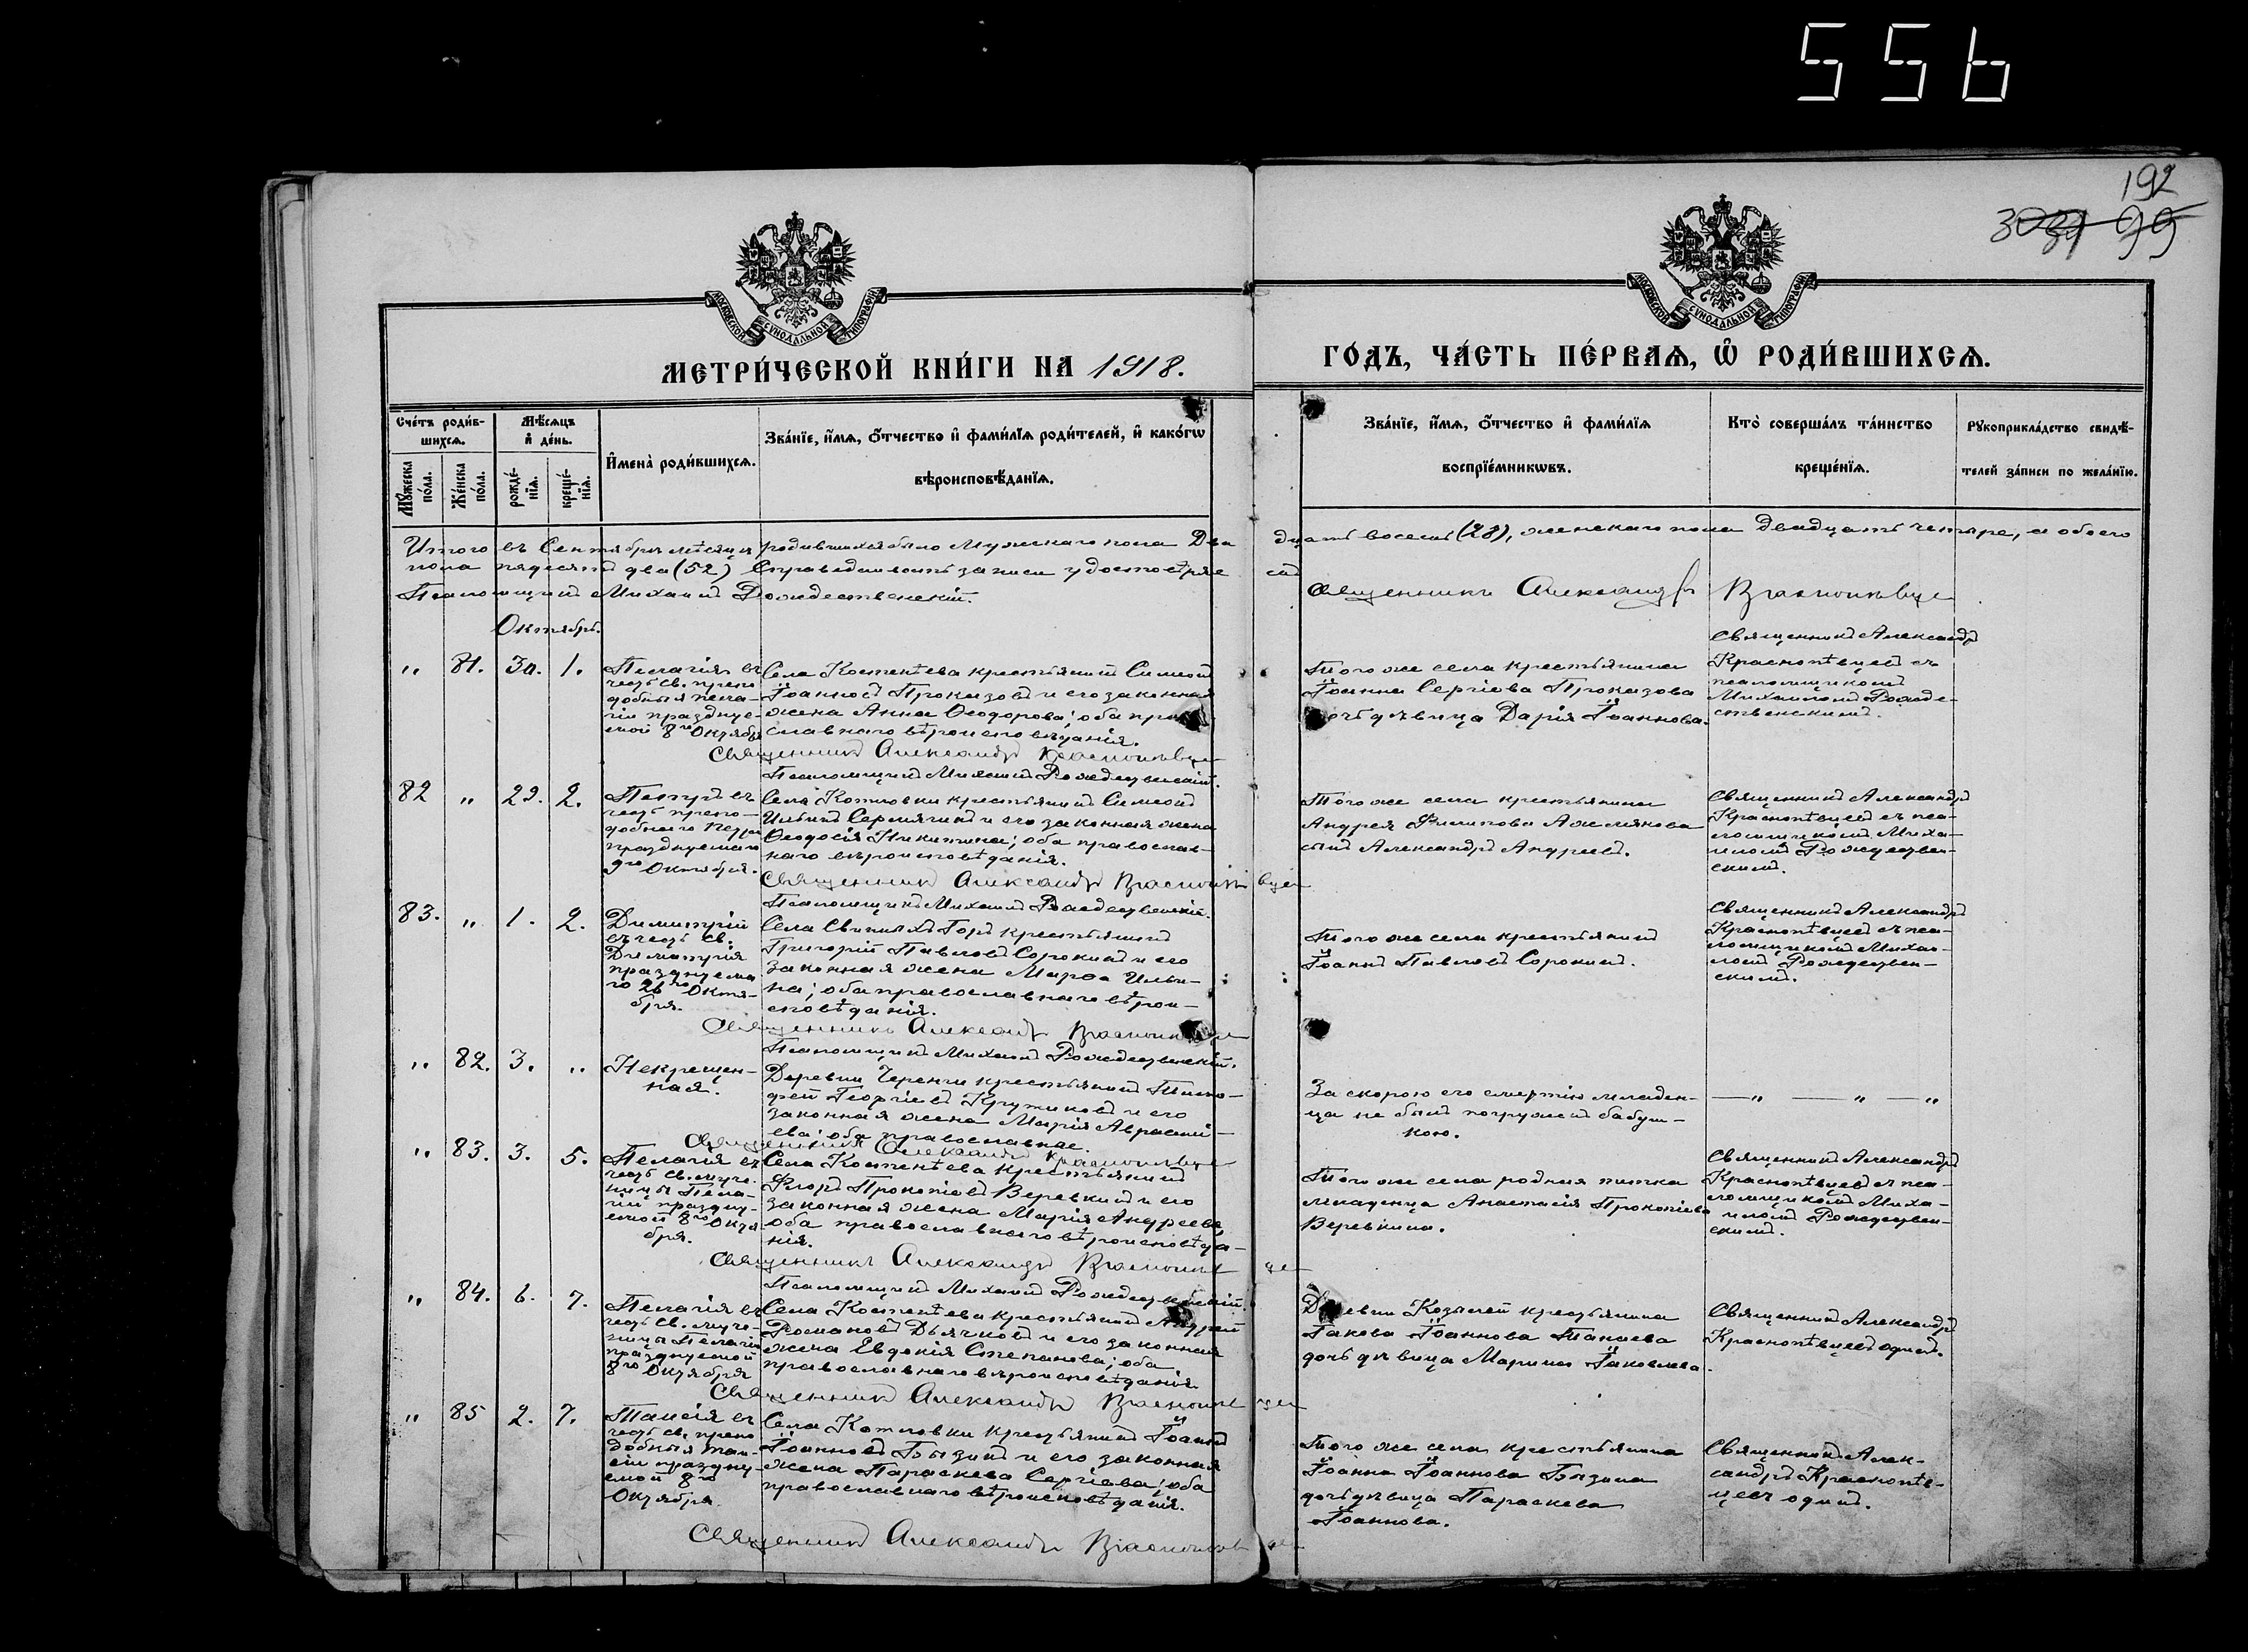 556
192
МОСКОВСКОЙ СѴНОДАЛЬНОЙ ТИПОГРАФІИ
МОСКОВСКОЙ СѴНОДАЛЬНОЙ ТИПОГРАФІИ
МЕТРИ́ЧЕСКОЙ КНИ́ГИ НА 1918.
ГО́ДЪ, ЧА́СТЬ ПЕ́РВАѦ, Ѡ҆ РОДИ́ВШИХСѦ.
Сче́тъ роди́в-
шихсѧ.
Мѣ́сѧцъ
и҆ де́нь.
Мꙋ́жеска по́ла.
Же́нска по́ла.
рожде́-
нїѧ.
креще́-
нїѧ.
И҆мена̀ роди́вшихсѧ.
Зва́нїе, и҆́мѧ, ѻ҆́тчество и҆ фами́лїѧ роди́телей, и҆ како́гѡ
вѣроисповѣ́данїѧ.
Зва́нїе, и҆́мѧ, ѻ҆́тчество и҆ фами́лїѧ
воспрїе́мникѡвъ.
Кто̀ соверша́лъ та́инство
креще́нїѧ.
Рꙋкоприкла́дство свидѣ́-
телей за́писи по жела́нїю.
Итого въ Сентябрѣ мѣсяцѣ родившихся было Мужескаго пола Два
дцать восемь (28), женскаго пола двадцать четыре, а обоего
пола пядесятъ два (52) Справедливость записи удостовѣряе
Священникъ Александръ Краснопѣвцевъ
Псаломщикъ Михаилъ Рождественскій.
Октябрь.
„ 81. 30. 1.
Пелагія въ
честь св. препо
добныя Пела-
гіи праздну-
емой 8го Октября
Села Костенѣева крестьянинъ Симеонъ
Іоанновъ Проказовъ и его законная
жена Анна Ѳеодорова; оба право
славнаго вѣроисповѣданія.
Священникъ Александръ Краснопѣвцевъ
Псаломщикъ Михаилъ Рождественскій.
Того же села крестьянина
Іоанна Сергіева Проказова
дочь дѣвица Дарія Іоаннова.
Священникъ Александръ
Краснопѣвцевъ съ
псаломщикомъ
Михаиломъ Рожде-
ственскимъ.
82 „ 29. 2.
Петръ въ
честь препо-
добнаго Петра
празднуемаго
9го Октября.
Села Котловки крестьянинъ Симеонъ
Ильинъ Сермягинъ и его законная жена
Ѳеодосія Никитина; оба православ-
наго вѣроисповѣданія.
Священникъ Александръ Краснопѣвцевъ
Псаломщикъ Михаилъ Рождественскій.
Того же села крестьянина
Андрея Филипова
сынъ Александръ Андреевъ.
Священникъ Александръ
Краснопѣвцевъ съ пса-
ломщикомъ Миха-
иломъ Рождествен-
скимъ.
83. „ 1. 2.
Димитрій
въ честь св.
Димитрія
празднуема
го 26го Октя-
бря.
Села Свиныхъ Горъ крестьянинъ
Григорій Павловъ Сорокинъ и его
законная жена Марѳа Ильи-
на; оба православнаго вѣрои-
сповѣданія.
Священникъ Александръ Краснопѣвцевъ
Псаломщикъ Михаилъ Рождественскій.
Того же села крестьянинъ
Іоаннъ Павловъ Сорокинъ.
Священникъ Александръ
Краснопѣвцевъ съ пса-
ломщикомъ Михаи-
ломъ Рождествен-
скимъ.
„ 82. 3. „
Некрещен-
ная.
Деревни Черенги крестьянинъ Тимо-
фей Георгіевъ Кружиковъ и его
законная жена Марія
ева; оба православные.
Священникъ Александръ Краснопѣвцевъ
За скорою его смертію младен-
ца не былъ погруженъ бабуш-
кою.
— „ — „ — „
„ 83. 3. 5.
Пелагія въ
честь св. муче-
ницы Пела-
гіи праздну-
емой 8го Октя
бря.
Села Костенѣева крестьянинъ
Флоръ Прокопіевъ Веревкинъ и его
законная жена Марія Андреева,
оба православнаго вѣроисповѣда-
нія.
Священникъ Александръ Краснопѣвцевъ
Псаломщикъ Михаилъ Рождественскій.
Того же села родная тетка
младенца Анастасія Прокопіева
Веревкина.
Священникъ Александръ
Краснопѣвцевъ съ пса-
ломщикомъ Миха-
иломъ Рождествен-
скимъ.
„ 84. 6. 7.
Пелагія въ
честь св. муче-
ницы Пелагіи
празднуемой
8го Октября
Села Костенѣева крестьянинъ Андрей
Романовъ Дьячковъ и его законная
жена Евдокія Степанова; оба
православнаго вѣроисповѣданія.
Священникъ Александръ Краснопѣвцевъ
Деревни Козылей крестьянина
Іакова Іоаннова Танаева
дочь дѣвица Марина Іаковлева.
Священникъ Александръ
Краснопѣвцевъ одинъ.
„ 85 2. 7.
Таисія въ
честь св. препо
добныя Таи-
сіи праздну-
емой 8го
Октября.
Села Котловки крестьянинъ Іоаннъ
Іоанновъ Бызинъ и его законная
жена Параскева Сергіева; оба
православнаго вѣроисповѣданія.
Священникъ Александръ Краснопѣвцевъ
Того же села крестьянина
Іоанна Іоаннова Бызина
дочь дѣвица Параскева
Іоаннова.
Священникъ Алек-
сандръ Краснопѣв-
цевъ одинъ.